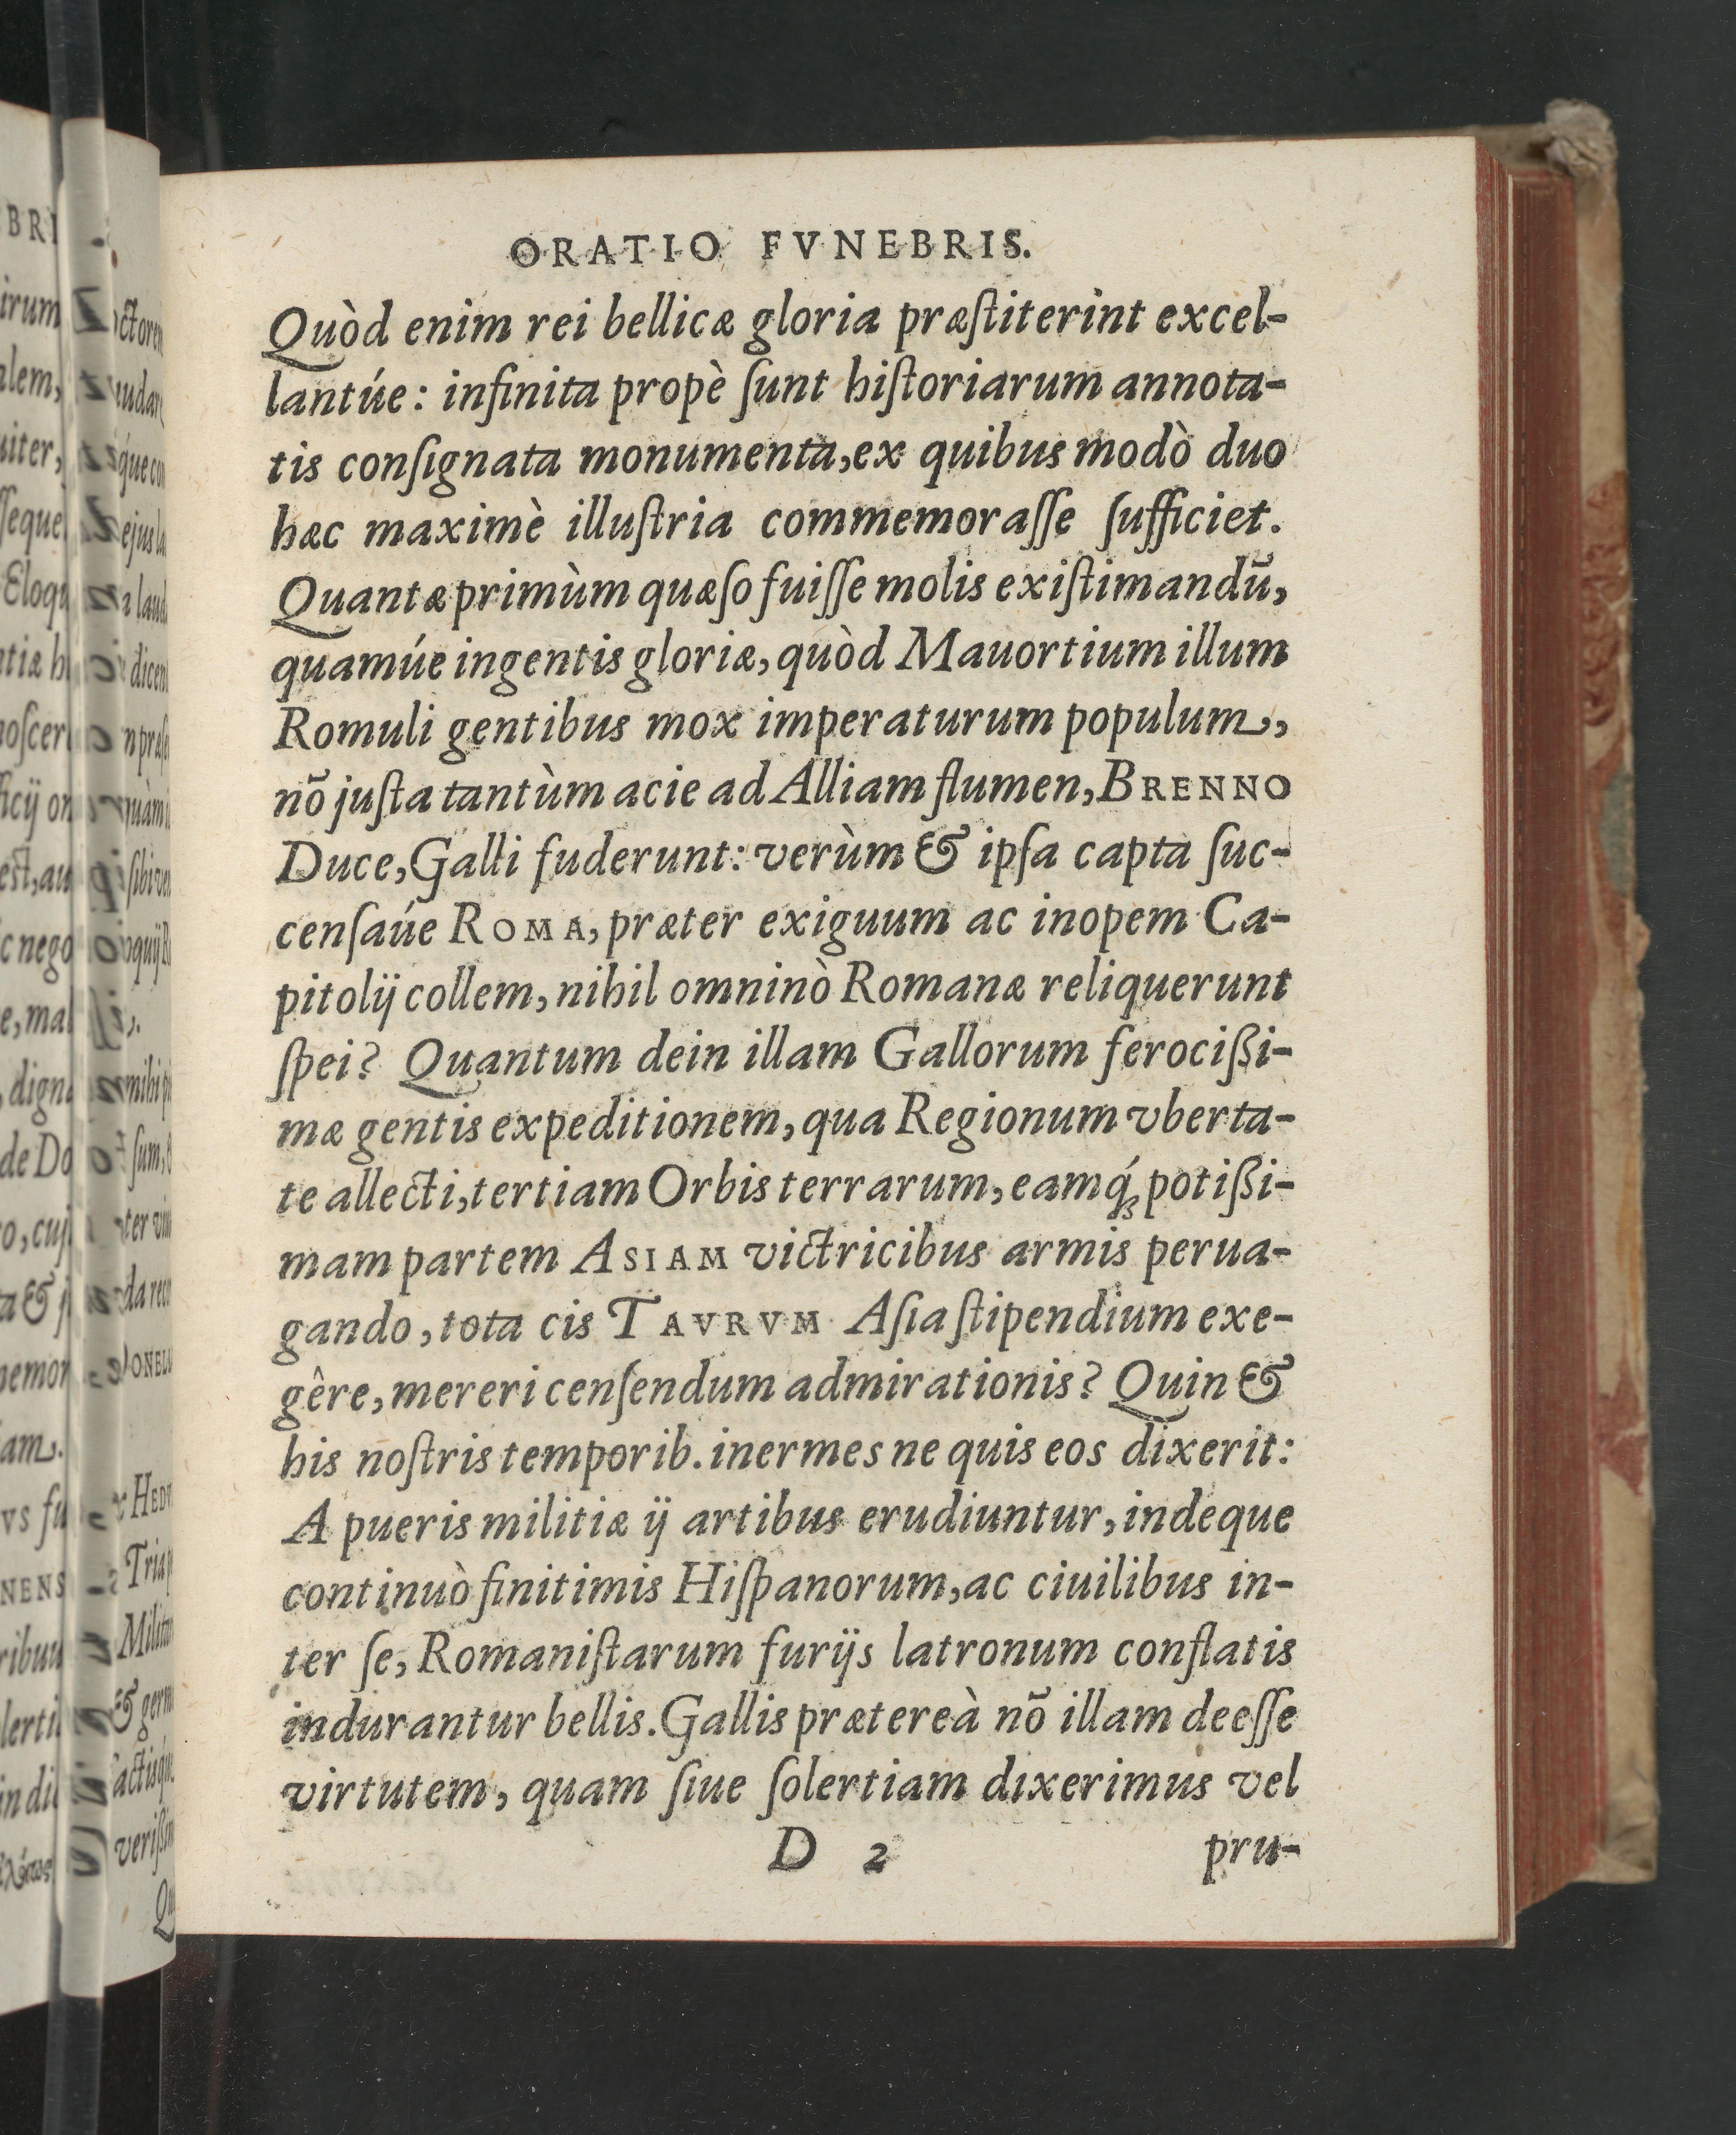 ORATIO FVNEBRIS.
Quòd enim rei bellicæ gloria præſtiterint excel-
lantúe: infinita propè ſunt hiſtoriarum annota-
tis conſignata monumenta, ex quibus modò duo
hæc maximè illuſtria commemoraſſe ſufficiet.
Quantæ primùm quæſo fuiſſe molis exiſtimandũ,
quamúe ingentis gloriæ, quòd Mauortium illum
Romuli gentibus mox imperaturum populum,
nõ juſta tantùm acie ad Alliam flumen, BRENNO
Duce, Galli fuderunt: verùm & ipſa capta ſuc-
cenſaúe ROMA, præter exiguum ac inopem Ca-
pitolij collem, nihil omninò Romanæ reliquerunt
ſpei? Quantum dein illam Gallorum ferocißi-
mæ gentis expeditionem, qua Regionum vberta-
te allecti, tertiam Orbis terrarum, eamq́ꝫ potißi-
mam partem ASIAM victricibus armis perua-
gando, tota cis TAVRVM Aſia ſtipendium exe-
gêre, mereri cenſendum admirationis? Quin &
his noſtris temporib. inermes ne quis eos dixerit:
A pueris militiæ ij artibus erudiuntur, indeque
continuò finitimis Hiſpanorum, ac ciuilibus in-
ter ſe, Romaniſtarum furijs latronum conflatis
indurantur bellis. Gallis prætereà nõ illam deeſſe
virtutem, quam ſiue ſolertiam dixerimus vel
D 2
pru-